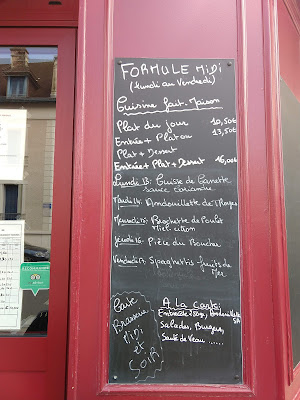 FORMULE MIDI
(Lundi au Vendredi)
Cuisine fait-Maison
Plat du jour 10,50€
Entrée + Plat ou 13,50€
Plat + Dessert
Entrée + Plat + Dessert 16,00€
Lundi 13: Cuisse de Canette
sauce coriandre
Mardi 14: Andouillette de Troyes
Mercredi 15: Brochette de Poulet
Miel-citron
Jeudi 16: Pièce du Boucher
Vendredi 17: Spaghettis fruits de
Mer
Carte
Brasserie
Midi
et
Soir
A la Carte:
Entrecôte, Andouillette
5A
Salades, Burgers,
Sauté de Veau .....